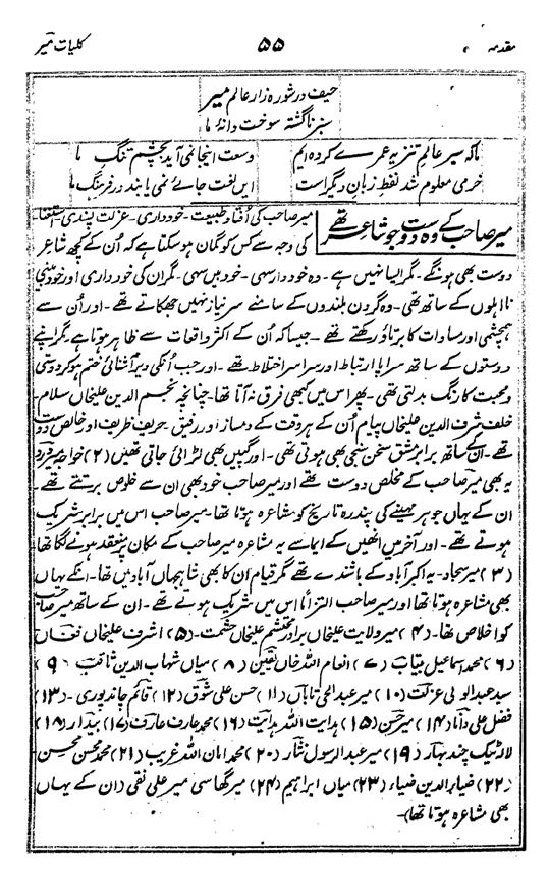 مقدمہ ۵۵ کلیات میر
حیف در شورہ زار عالم میر
سبز ناگشتہ سوخت دانۂ ما
ما کہ سیر عالم تنزیہ عمرے کردہ ایم وسعت اینجا نمی آید بچشم تنگ ما
خرمی معلوم شد لفظ زبان دیگر است ایں لغت جائے نمی یابند در فرہنگ ما
میر صاحب کے وہ دوست جو شاعر تھے
میر صاحب کی افتاد طبیعت۔ خودداری۔ عزلت پسندی۔ استغنا
کی وجہ سے کس کو گمان ہو سکتا ہے کہ اُن کے کچھ شاعر
دوست بھی ہونگے۔ مگر ایسا نہیں ہے۔ وہ خوددار سہی۔ خود بیں سہی۔ مگر ان کی خودداری اور خود بینی
نااہلوں کے ساتھ تھی۔ وہ گردن بلندوں کے سامنے سر نیاز نہیں جھکاتے تھے۔ اور اُن سے
ہمچشمی اور مساوات کا برتاؤ رکھتے تھے۔ جیسا کہ اُن کے اکثر واقعات سے ظاہر ہوتا ہے مگر اپنے
دوستوں کے ساتھ سراپا ارتباط اور سراسر اختلاط تھے۔ اور جب اُنکی دیر آشنائی ختم ہو کر دوستی
و محبت کا رنگ بدلتی تھی۔ پھر اس میں کبھی فرق نہ آتا تھا۔ چنانچہ نجم الدین علیخاں سلام۔
خلف شرف الدین علیخاں پیام اُن کے ہر وقت کے دمساز اور رفیق۔ حریف ظریف اور خالص دوست
تھے۔ ان کے ساتھ برابر مشق سخن سنجی بھی ہوتی تھی۔ اور گپیں بھی لڑائی جاتی تھیں (۲) خواجہ میر درد
یہ بھی میر صاحب کے مخلص دوست تھے اور میر صاحب خود بھی ان سے خلوص برتتے تھے۔
ان کے یہاں جو ہر مہینے کی پندرہ تاریخ کو مشاعرہ ہوتا تھا۔ میر صاحب اس میں برابر شریک
ہوتے تھے۔ اور آخر میں انھیں کے ایما سے یہ مشاعرہ میر صاحب کے مکان پر منعقد ہونے لگا تھا
(۳) میر سجاد۔ یہ اکبرآباد کے باشندے تھے مگر قیام اُن کا بھی شاہجہاں آباد میں تھا۔ انکے یہاں
بھی مشاعرہ ہوتا تھا اور میر صاحب التزاماً اس میں شریک ہوتے تھے۔ ان کے ساتھ میر صاحب
کو اخلاص تھا۔ (۴) میر ولایت علیخاں برادر محتشم علیخاں حشمت۔ (۵) اشرف علیخاں فغاں
(۶) محمد اسماعیل بیتاب (۷) انعام اللہ خاں یقین (۸) میاں شہاب الدین ثاقب (۹)
سید عبدالولی عزلت (۱۰) میر عبدالحی تاباں (۱۱) حسن علی شوق (۱۲) قائم چاندپوری۔ (۱۳)
فضل علی دانا (۱۴) میر حسن (۱۵) ہدایت اللہ ہدایت (۱۶) محمد عارف عارف (۱۷) بیدار (۱۸)
لالہ ٹیک چند بہار (۱۹) میر عبدالرسول نثار (۲۰) محمد امان اللہ غریب (۲۱) محمد محسن محسن
(۲۲) ضیاء الدین ضیاء (۲۳) میاں ابراہیم (۲۴) میر گھاسی میر علی نقی (ان کے یہاں
بھی مشاعرہ ہوتا تھا)۔